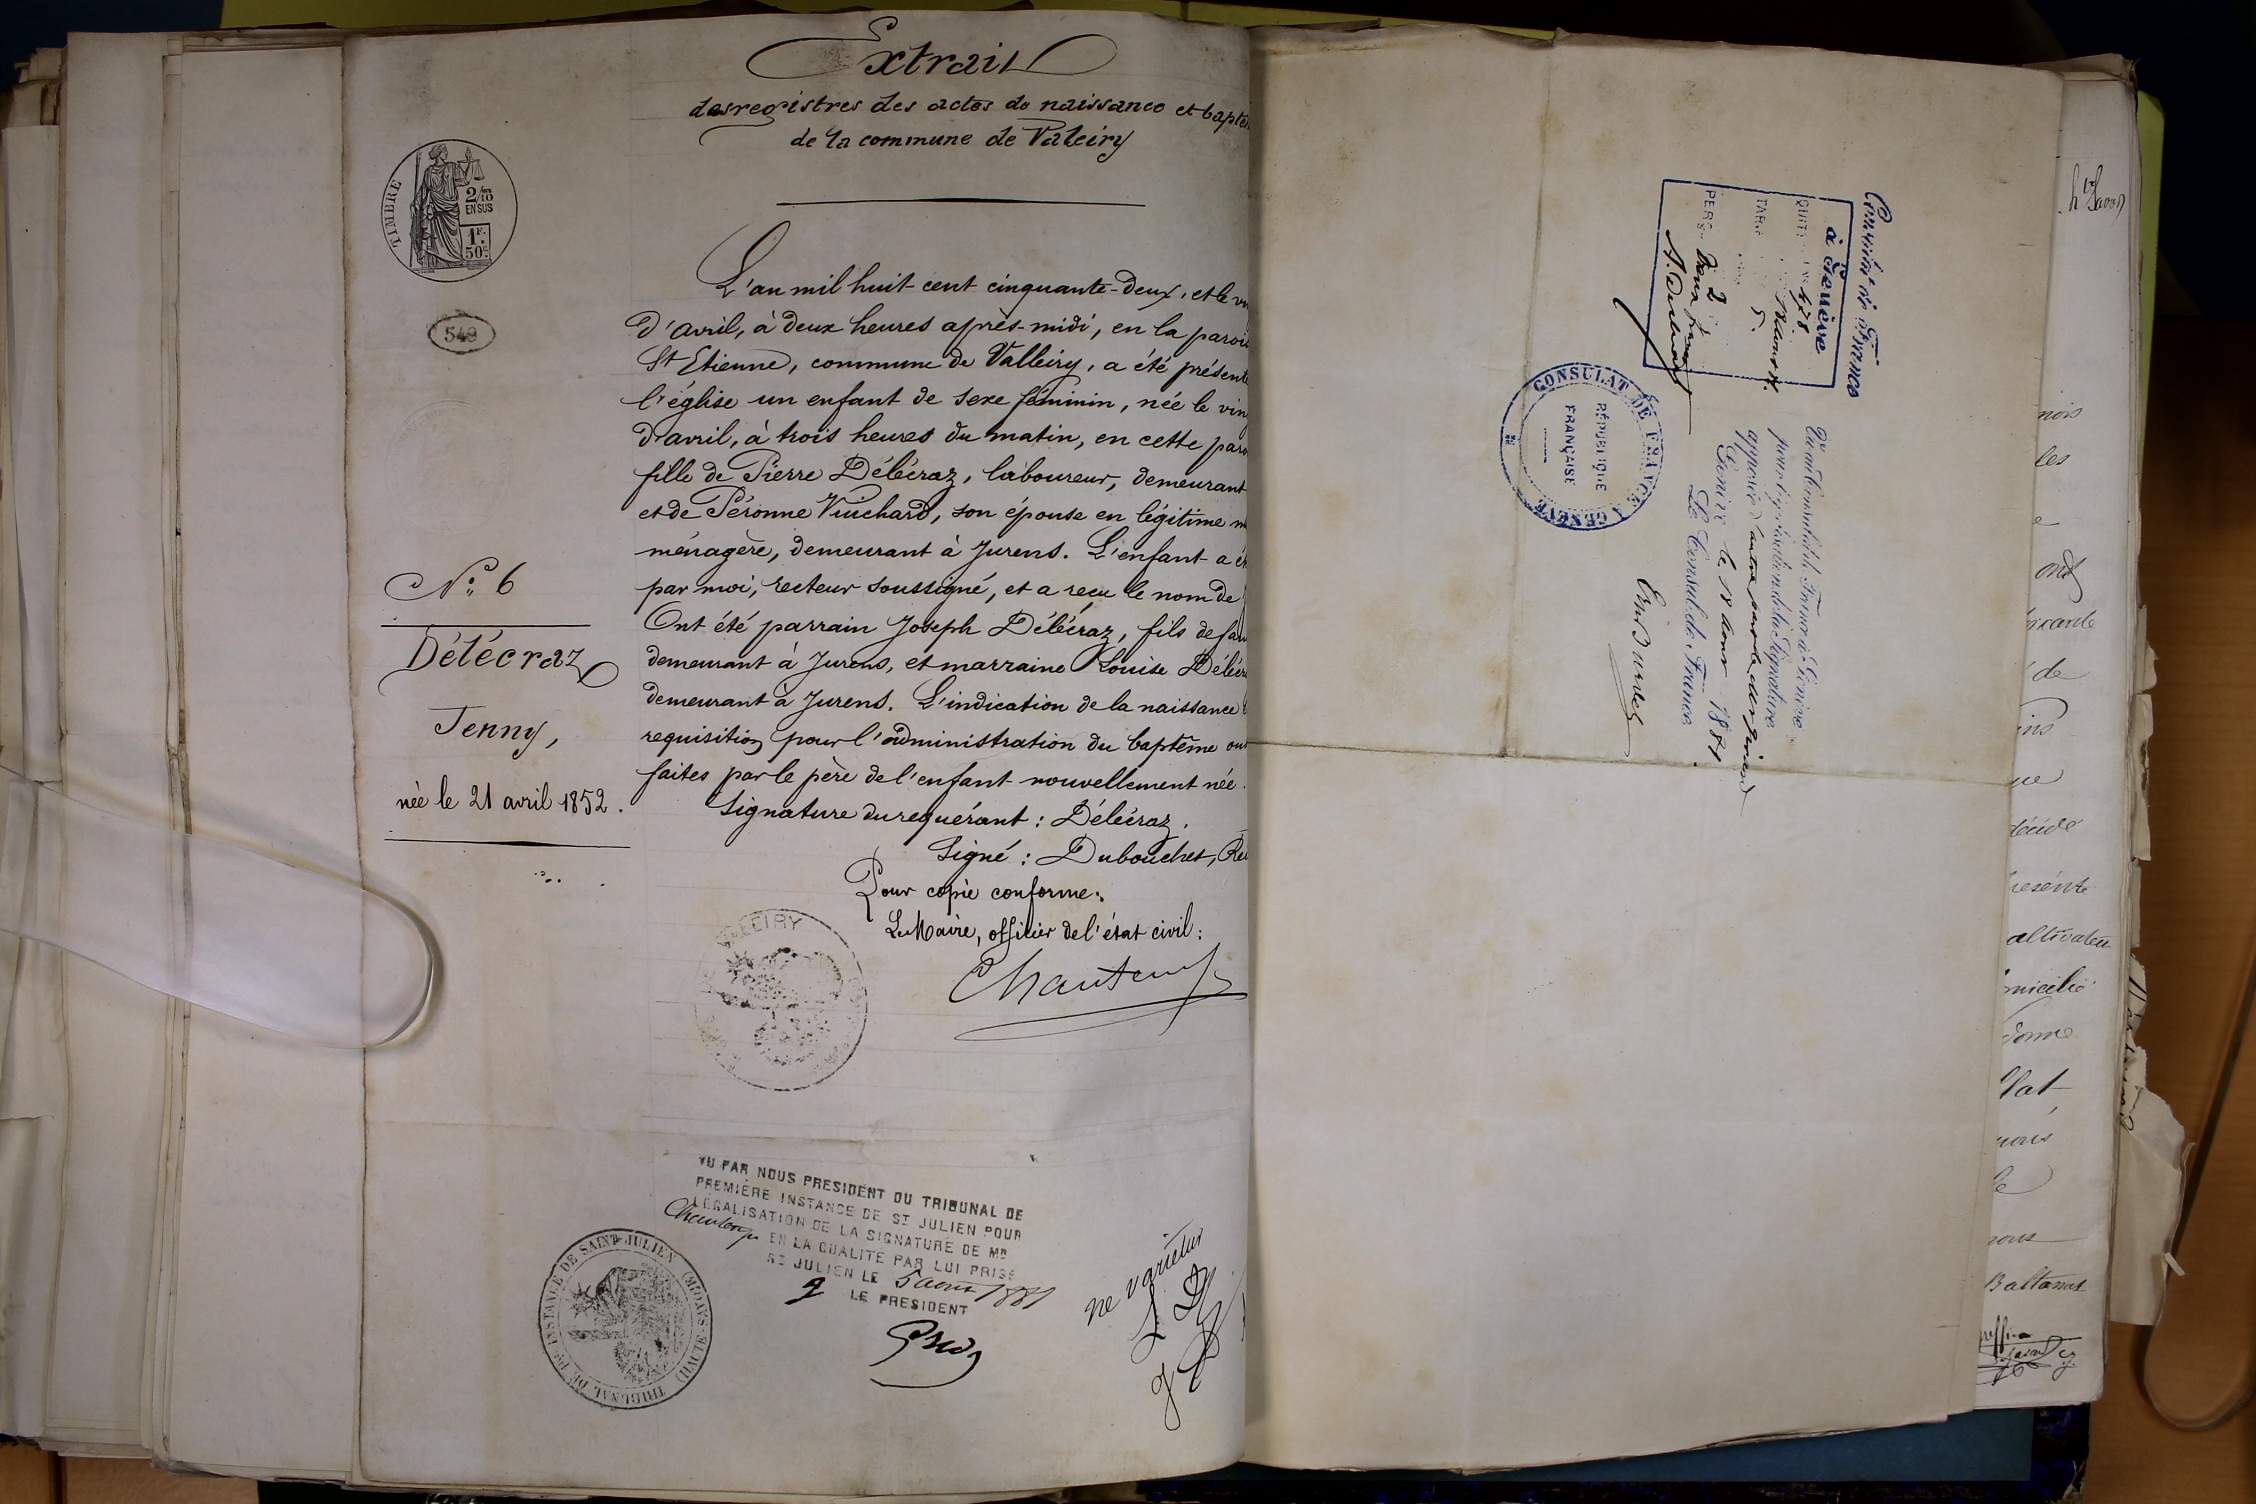 Extrait
des registres des actes de naissance et bapt
de la commune de Valeiry
TIMBRE
2/10
EN SUS
1F.
50c
549
L'an mil huit cent cinquante-deux, et le
d'avril, à deux heures après-midi, en la paroi
St Etienne, commune de Valleiry, a été présent
l'église un enfant de sexe féminin, née le vin
d'avril, à trois heures du matin, en cette par
fille de Pierre Délécraz, laboureur, demeurant
et de Péronne Vuichard, son épouse en légitime m
ménagère, demeurant à Jurens. L'enfant a é
par moi, recteur soussigné, et a reçu le nom de
Ont été parrain Joseph Délécraz, fils de
demeurant à Jurens, et marraine Louise Déléc
demeurant à Jurens. L'indication de la naissance
requisition pour l'administration du baptême on
faites par le père de l'enfant nouvellement née.
Signature du requérant : Délécraz.
Signé : Dubouchet, Re
Pour copie conforme :
Le Maire, officier de l'état civil :
Chautemps
N° 6
Délécraz
Jenny,
née le 21 avril 1852.
VALLEIRY
VU PAR NOUS PRESIDENT DU TRIBUNAL DE
PREMIÈRE INSTANCE DE ST JULIEN POUR
LÉGALISATION DE LA SIGNATURE DE MR
Chautemps EN LA QUALITÉ PAR LUI PRISE
ST JULIEN LE 5 août 1881
LE PRESIDENT
TRIBUNAL DE 1RE INSTANCE DE SAINT-JULIEN (HAUTE-SAVOIE)
ne varietur
Consulat de France
à Genève
478
TARIF
PERÇU 2
CONSULAT DE FRANCE A GENÈVE
RÉPUBLIQUE
FRANÇAISE
Vu au Consulat de France à Genève
pour légalisation de la Signature
apposée d'autre part
Genève le 18 août 1881.
Le Consul de France
nois
les
e
de
ins
décidé
présente
domicilié
nous
le
nous